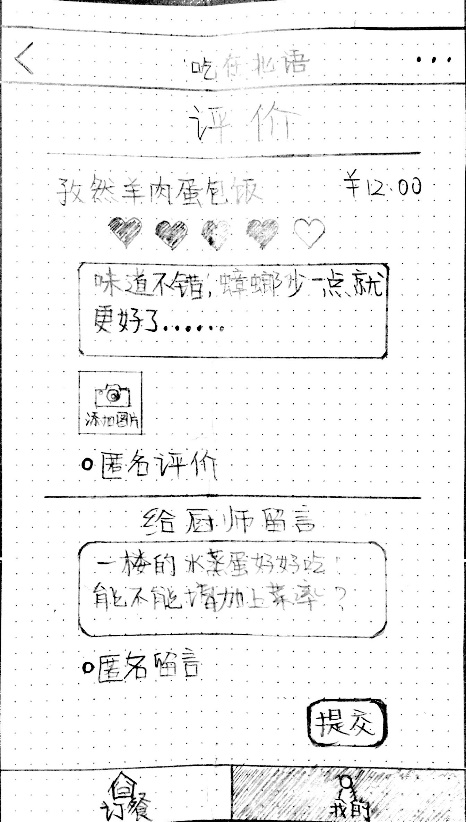 吃在北语
评价
孜然羊肉蛋包饭 ¥12.00
味道不错,蟑螂少一点就
更好了......
添加图片
匿名评价
给厨师留言
一楼的水蒸蛋好好吃!
能不能增加上菜率?
匿名留言
提交
订餐 我的